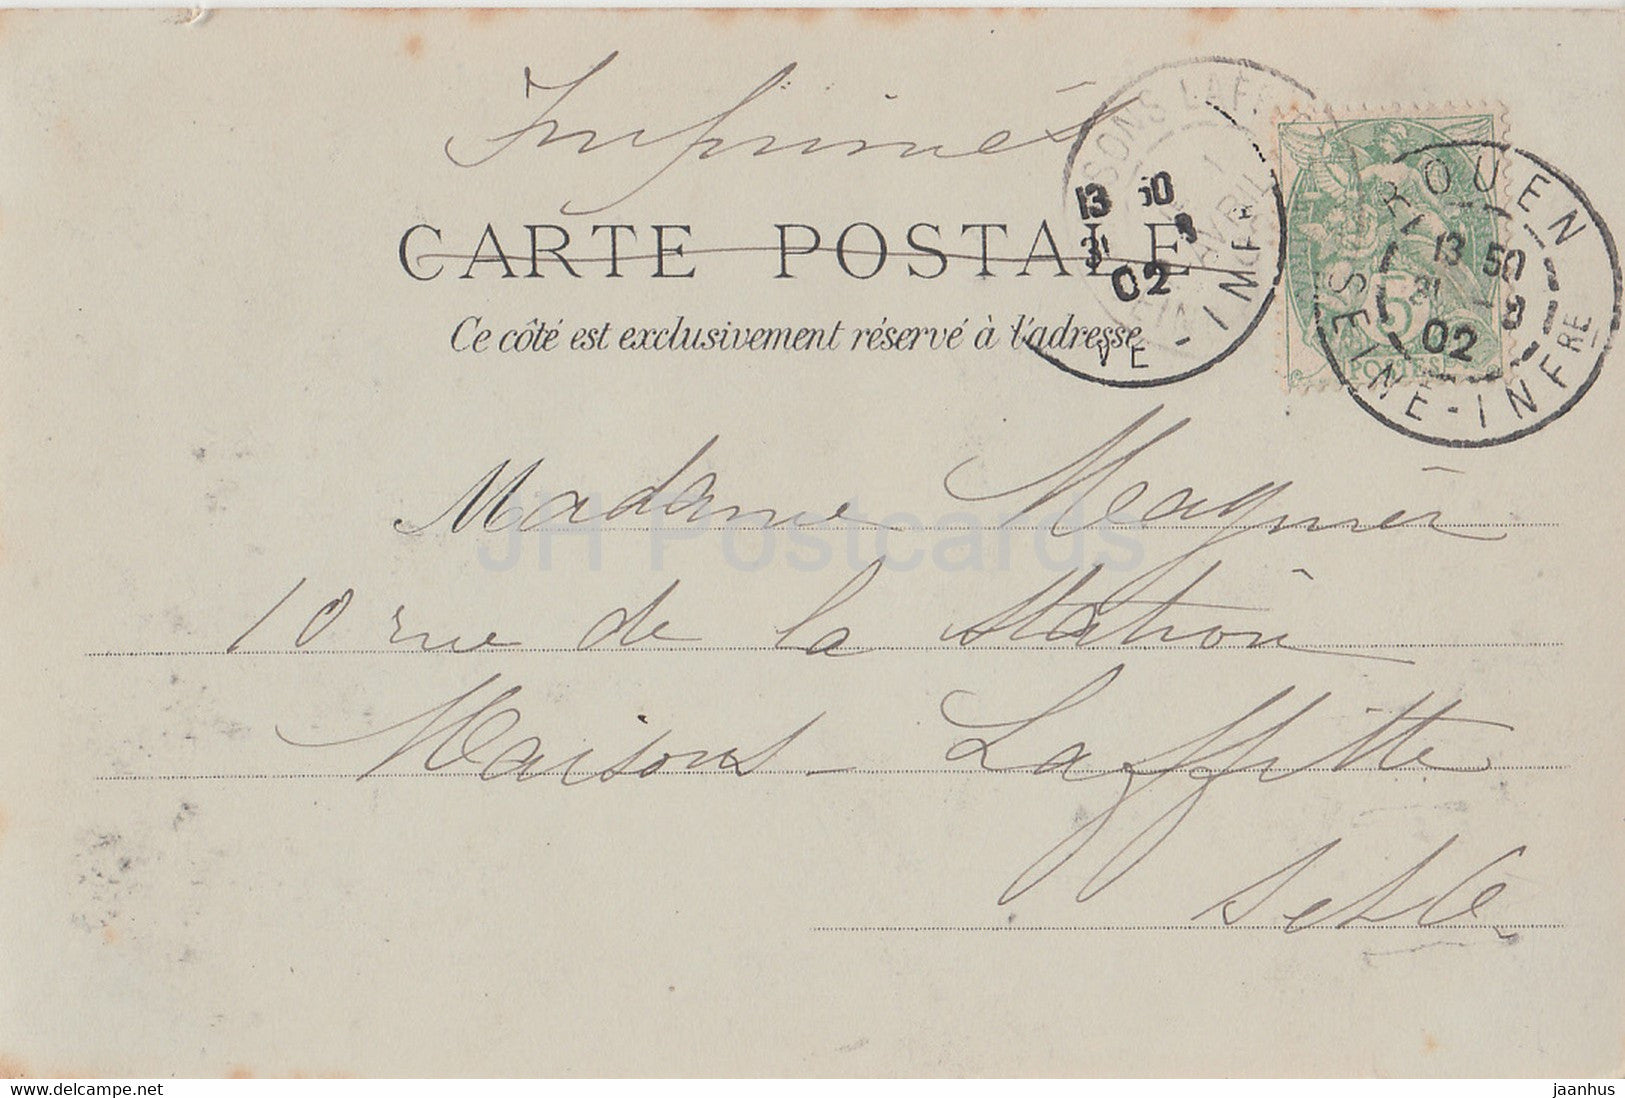 Imprimés
CARTE POSTALE
Ce côté est exclusivement réservé à l'adresse
ROUEN
R.P.
13 50
31 3
02
SEINE-INFRE
13 50
31 3
02
VE-INFRE
AVRIL
5
POSTES
Madame Magnier
10 rue de la Station
Maisons-Laffitte
S et O
JH Postcards
delcampe.net
jaanhus